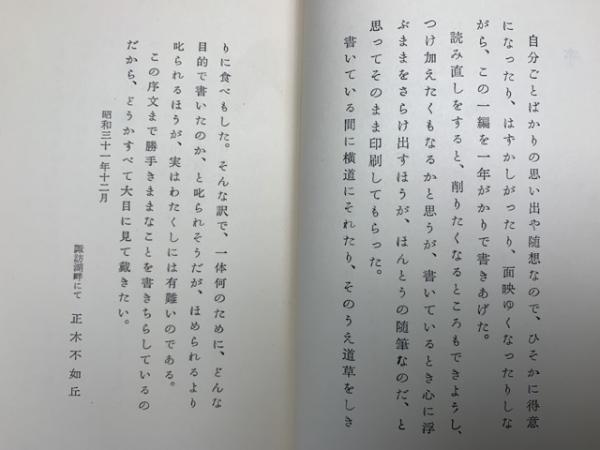 自分ごとばかりの思い出や随想なので、ひそかに得意
になったり、はずかしがったり、面映ゆくなったりしな
がら、この一編を一年がかりで書きあげた。
読み直しをすると、削りたくなるところもできようし、
つけ加えたくもなるかと思うが、書いているとき心に浮
ぶままをさらけ出すほうが、ほんとうの随筆なのだ、と
思ってそのまま印刷してもらった。
書いている間に横道にそれたり、そのうえ道草をしき
りに食べもした。そんな訳で、一体何のために、どんな
目的で書いたのか、と叱られそうだが、ほめられるより
叱られるほうが、実はわたくしには有難いのである。
この序文まで勝手きままなことを書きちらしているの
だから、どうかすべて大目に見て戴きたい。
昭和三十一年十二月
諏訪湖畔にて 正木不如丘